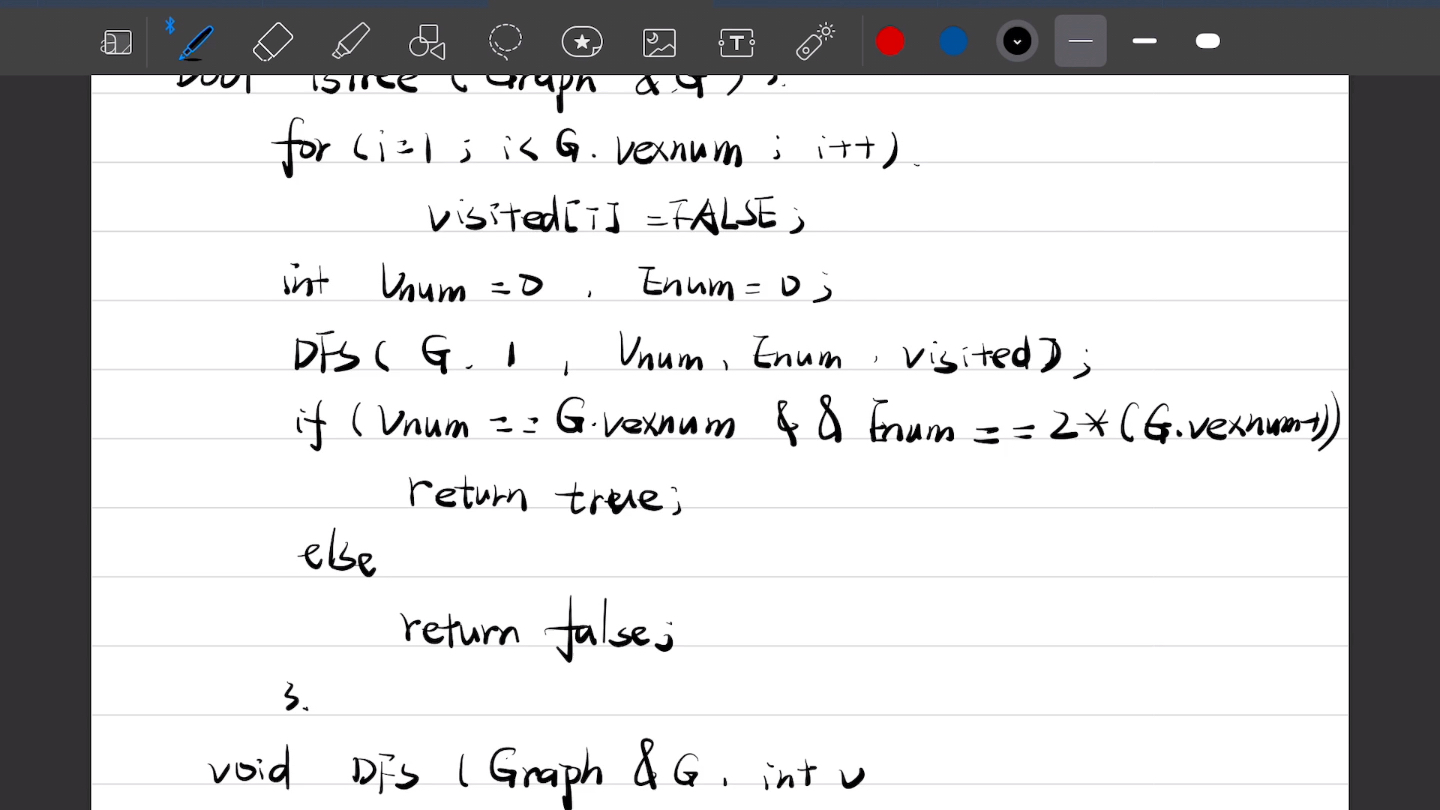 bool isTree (Graph & G) {
for (i=1 ; i< G. vexnum ; i++)
visited[i] =FALSE ;
int Vnum =0 , Enum = 0 ;
DFS ( G , 1 , Vnum , Enum , visited) ;
if (Vnum == G.vexnum && Enum == 2*(G.vexnum-1))
return true ;
else
return false ;
}
void DFS ( Graph & G , int v